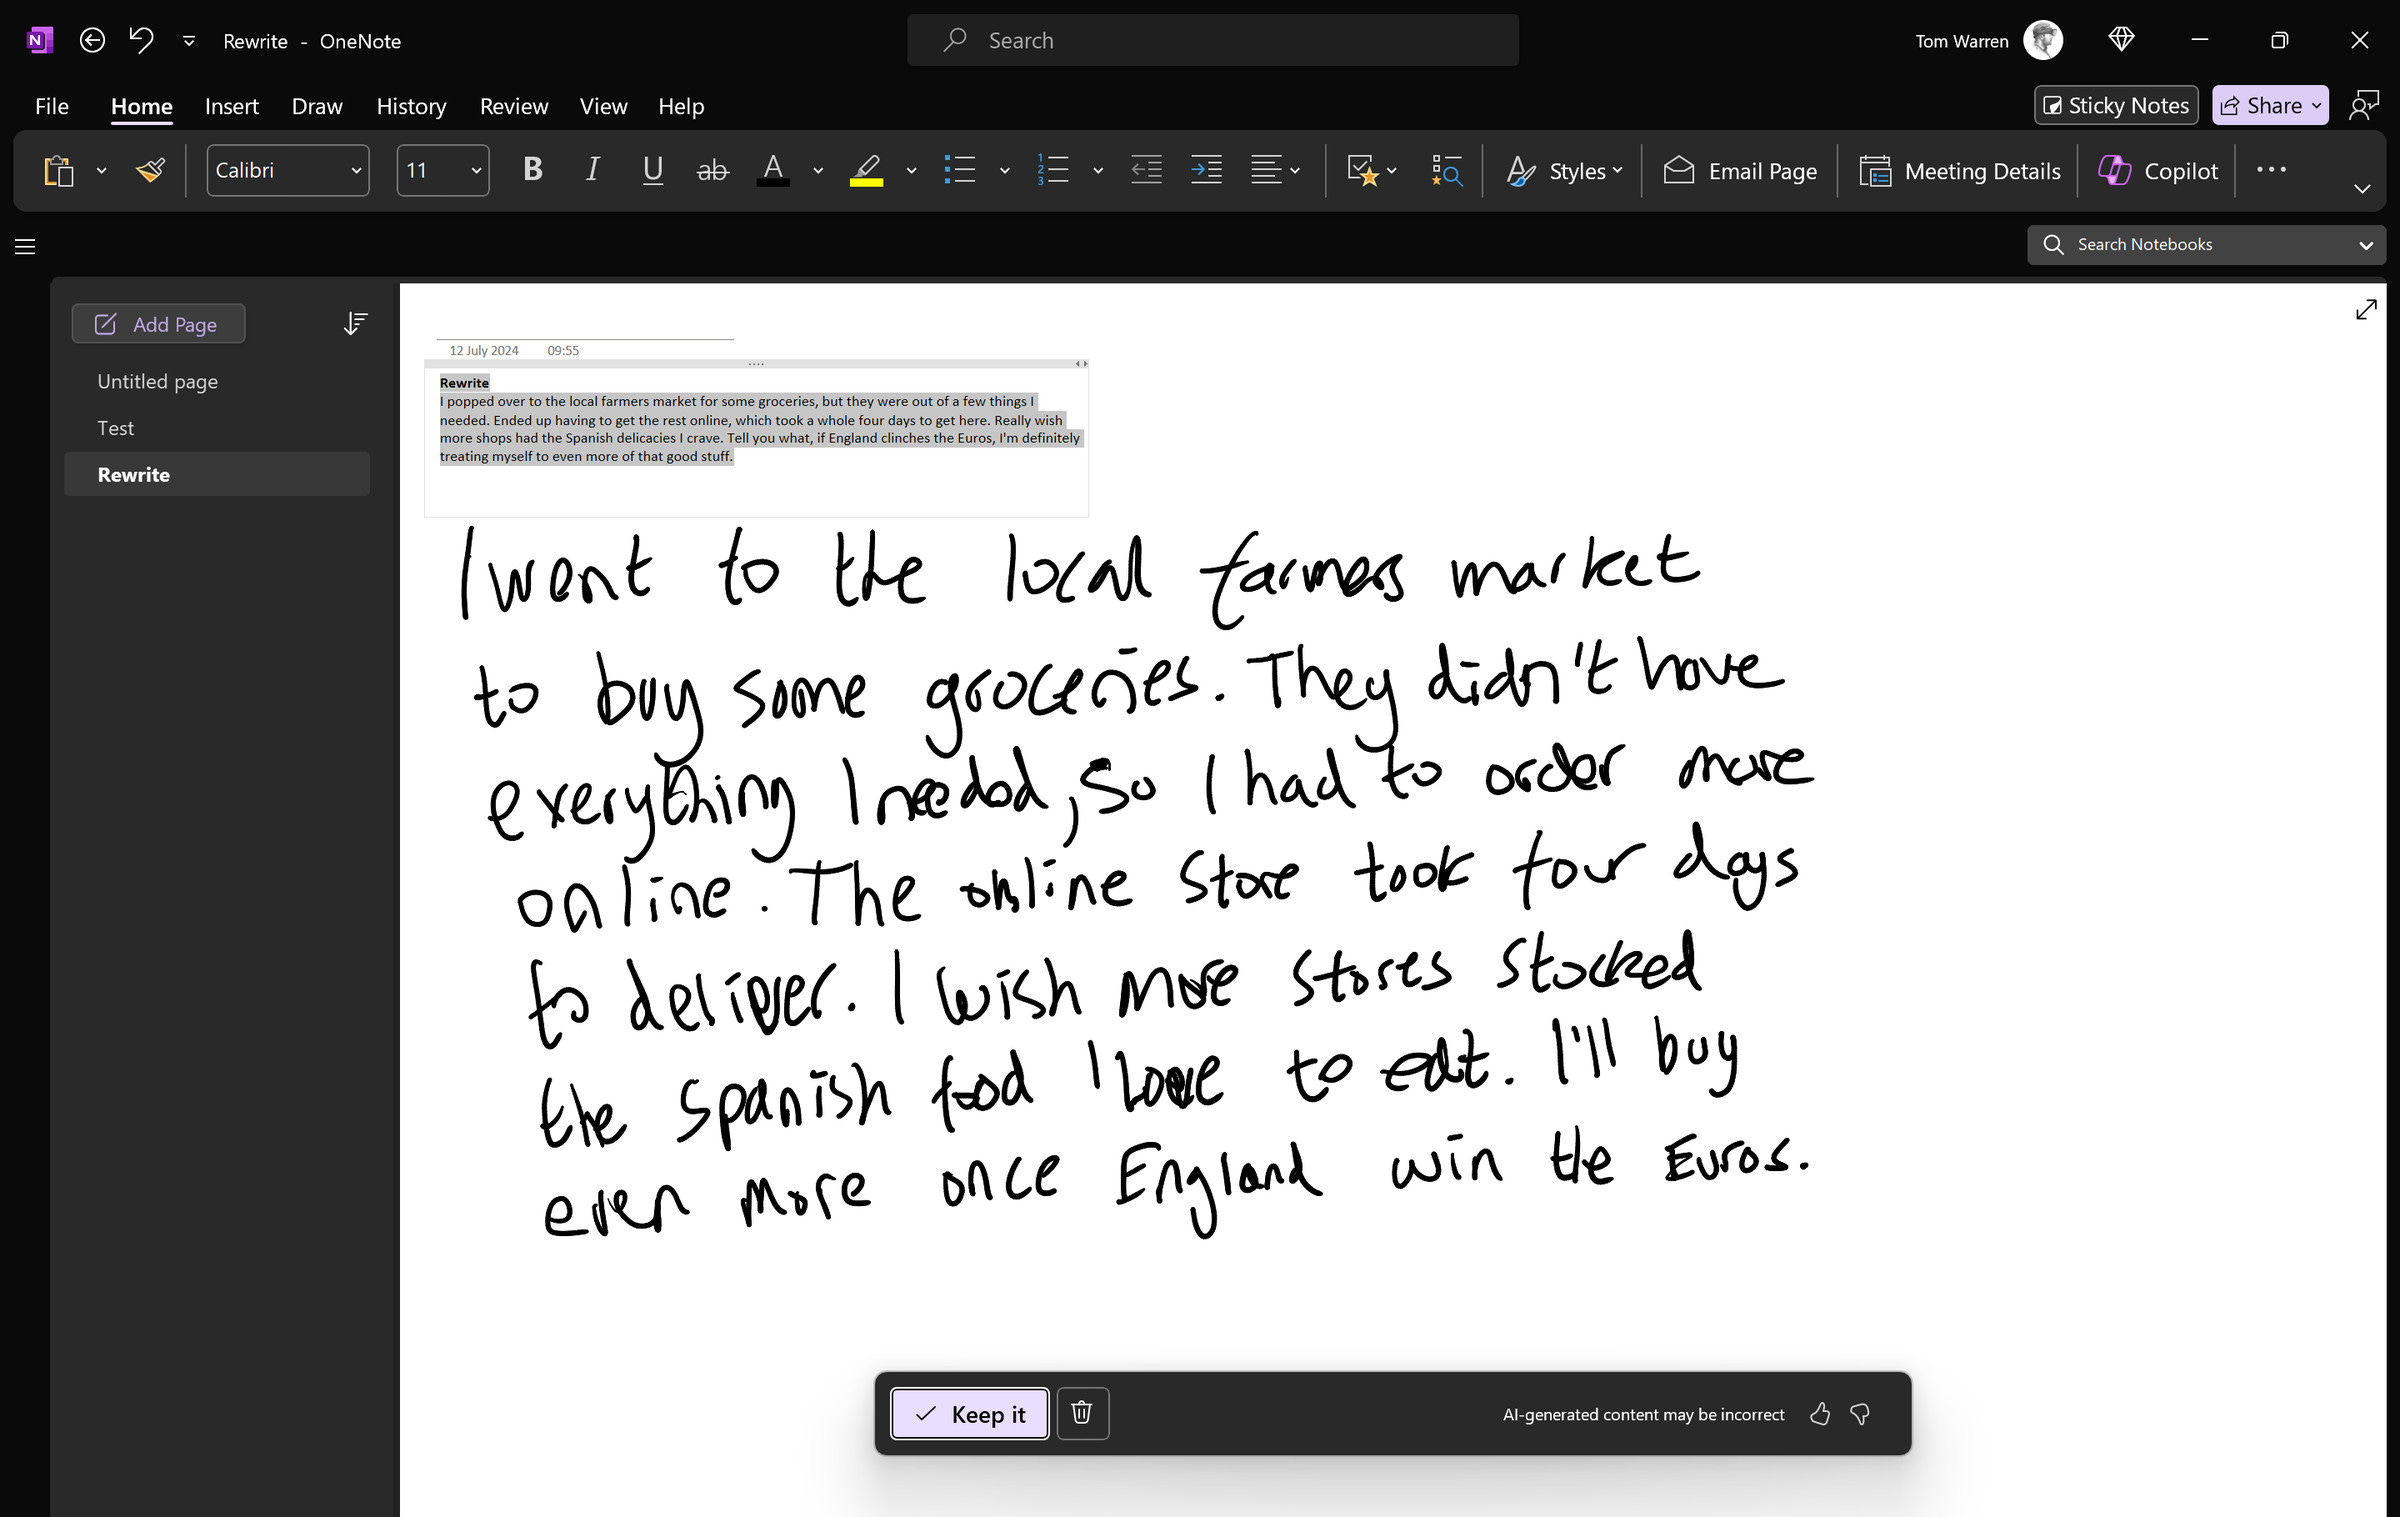 Rewrite - OneNote
Search
Tom Warren
File Home Insert Draw History Review View Help
Sticky Notes Share
Calibri 11 B I U ab A Styles Email Page Meeting Details Copilot
Search Notebooks
Add Page
Untitled page
Test
Rewrite
12 July 2024 09:55
Rewrite
I popped over to the local farmers market for some groceries, but they were out of a few things I
needed. Ended up having to get the rest online, which took a whole four days to get here. Really wish
more shops had the Spanish delicacies I crave. Tell you what, if England clinches the Euros, I'm definitely
treating myself to even more of that good stuff.
I went to the local farmers market
to buy some groceries. They didn't have
everything I needed, so I had to order more
online. The online store took four days
to deliver. I wish more stores stocked
the Spanish food I love to eat. I'll buy
even more once England win the Euros.
Keep it
AI-generated content may be incorrect